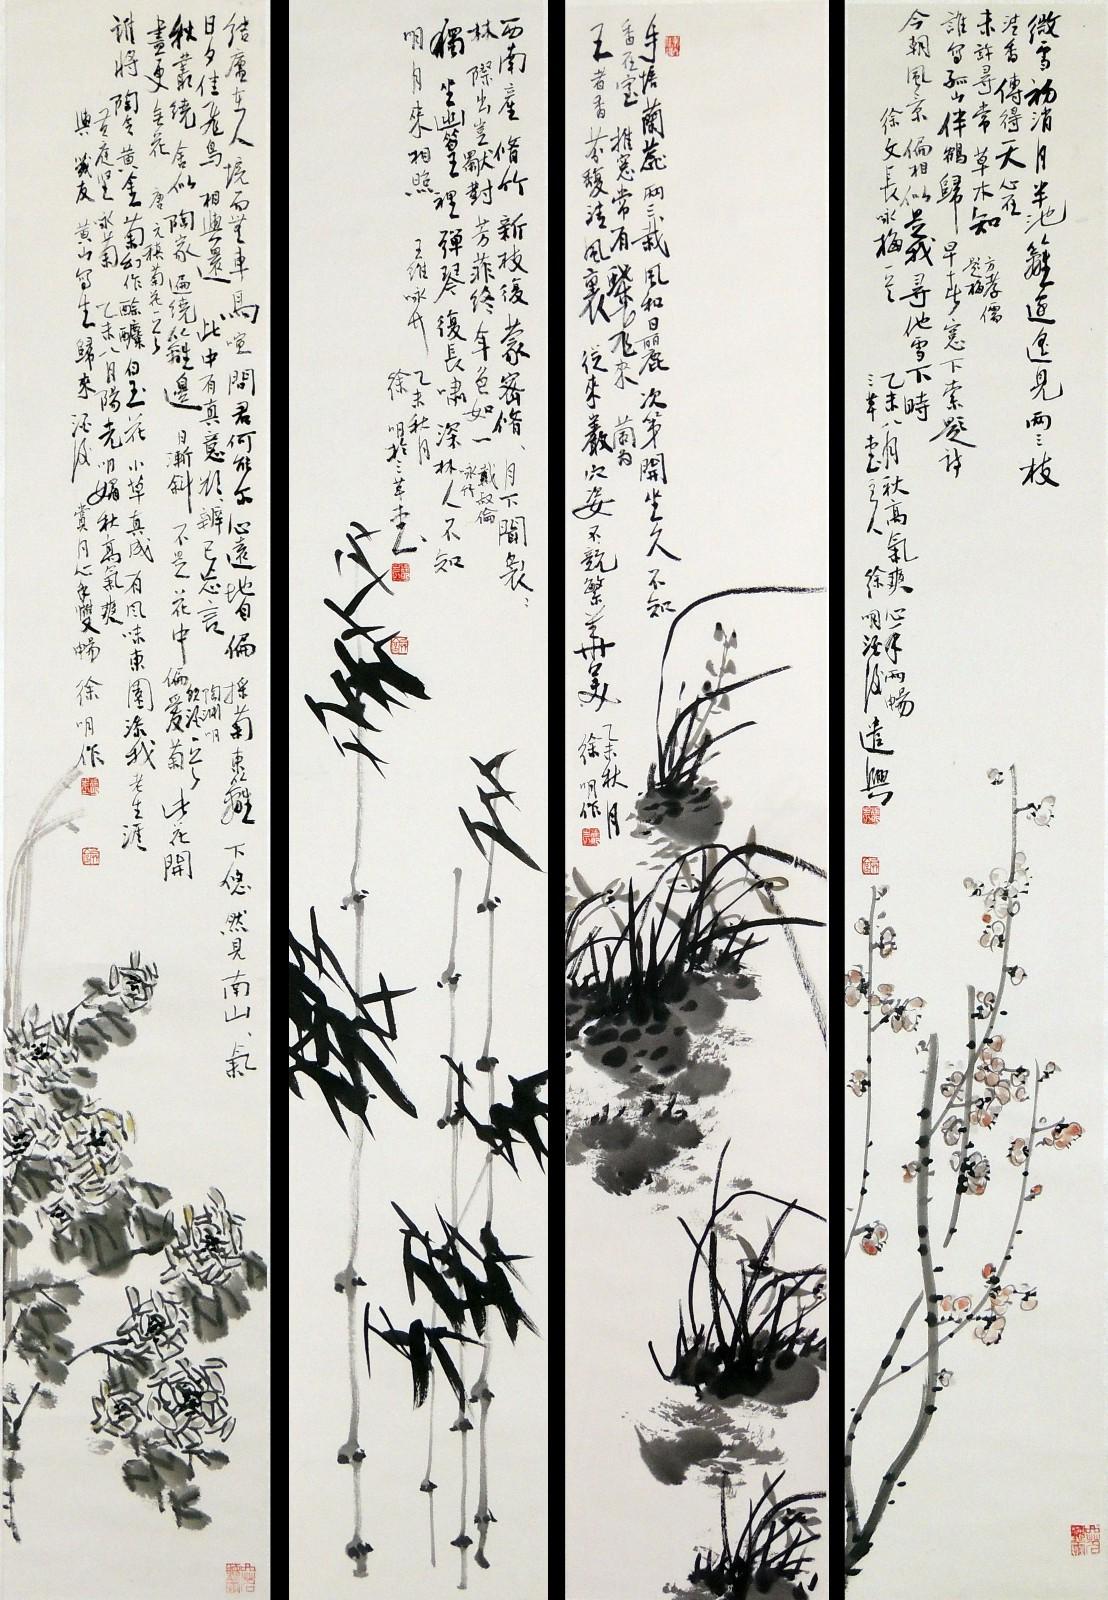 微雪初消月半池籬邊遙見兩三枝
清香傳得天心在
未許尋常草木知
方孝儒
題梅
誰寫孤山伴鶴歸早春窓下索題詩
今朝風京偏相似是我尋他雪下時
徐文長咏梅一首
乙未八月秋高氣爽心手兩暢
三草堂主人徐明酒後遣興
手培蘭蕊兩三栽風和日麗次第開坐久不知
香在室推窓常有蝶飛來
王者香芬馥清風裏從來巖穴姿不競繁華美
乙未秋月
徐明作
西南產脩竹新枝復蒙密脩、月下聞裊:
林際出豈獻對芳菲終年色如一
戴叔倫
咏竹
獨坐幽篁裡彈琴復長嘯深林人不知
明月來相照王維咏竹
乙未秋月
徐明於三草堂
結廬在人境而無車馬喧問君何能尔心遠地自偏採菊東籬下悠然見南山、氣
日夕佳飛鳥相與還此中有真意欲辨已忘言
陶淵明
秋叢繞舍似陶家遍繞籬邊日漸斜不是花中偏愛菊此花開
盡更無花唐元稹菊花
誰將陶令黃金菊幻作酴醾白玉花小草真成有風味東園添我老生涯
黃庭堅咏菊乙未八月陽光明媚秋高氣爽
與戰友黃山寫生歸來酒後賞月心手雙暢徐明作